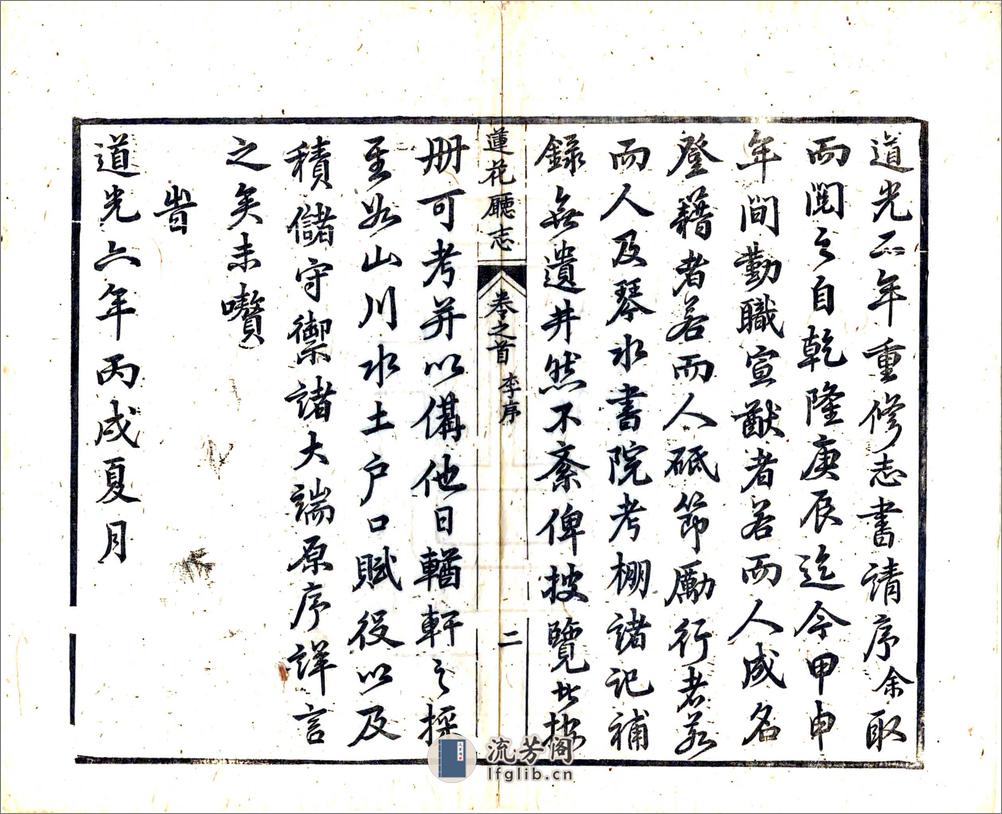 道光年重修志書請序余取
而閱之自乾隆庚辰迄今甲申
年間勤職宣猷者若而人成名
登籍者若而人砥節勵行者若
而人及琴水書院考棚諸記補
錄無遺井然不紊俾披覽者按
蓮花廳志
卷之首 李序
二
冊可考并以備他日輶軒之採
至如山川水土戶口賦役以及
積儲守禦諸大端原序詳言
之矣未囋
旹
道光六年丙戌夏月
流芳閣
lfglib.cn